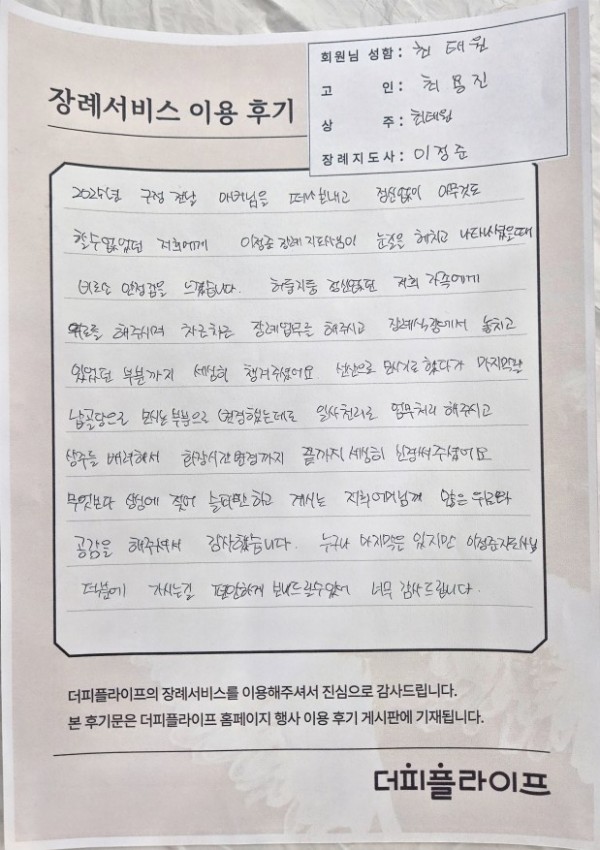 회원님 성함 : 최태원
고 인 : 최용진
상 주 : 최태원
장례지도사 : 이정준
장례서비스 이용 후기
2025년 구정 전날 아버님을 떠나보내고 정신없이 아무것도
할수없었던 저희에게 이정준 장례지도사님이 눈길을 헤치고 나타나셨을때
비로소 안정감을 느꼈습니다. 허둥지둥 정신없던 저희 가족에게
위로를 해주시며 차근차근 장례업무를 해주시고 장례식장에서 놓치고
있었던 부분까지 세심히 챙겨주셨어요 선산으로 모시기로 했다가 마지막날
납골당으로 모시는부분으로 변경했는데도 일사천리로 업무처리 해주시고
상주들 배려해서 화장시간변경까지 끝까지 세심히 신경써주셨어요
무엇보다 상심에 젖어 슬퍼만하고 계시는 저희어머님께 많은 위로와
공감을 해주셔서 감사했습니다. 누구나 마지막은 있지만 이정준지도사님
덕분에 가시는길 편안하게 보내드릴수있어 너무 감사드립니다.
더피플라이프의 장례서비스를 이용해주셔서 진심으로 감사드립니다.
본 후기문은 더피플라이프 홈페이지 행사 이용 후기 게시판에 기재됩니다.
더피플라이프